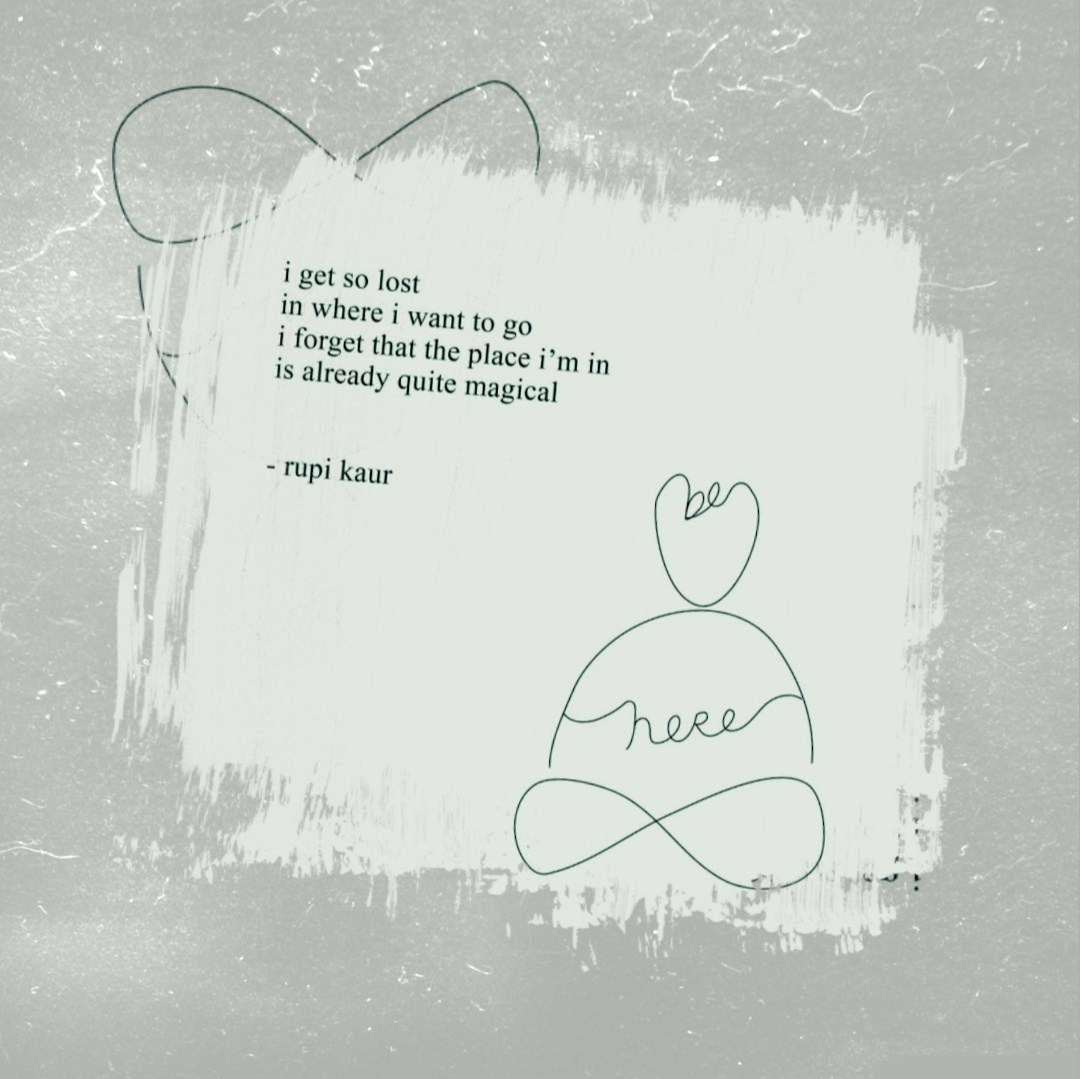 i get so lost
in where i want to go
i forget that the place i’m in
is already quite magical
- rupi kaur
be
here